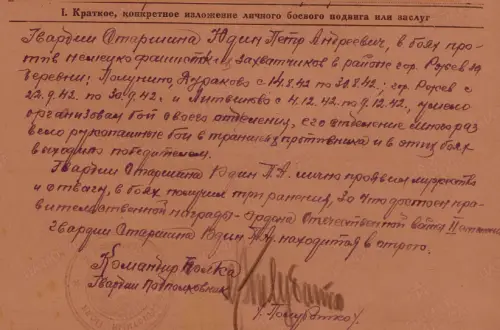 I. Краткое, конкретное изложение личного боевого подвига или заслуг
Гвардии Старшина Юдин Петр Андреевич, в боях про-
тив немецко фашистских захватчиков в районе гор. Ржев
деревни: Полунино, Кудаково с 14.8.42 по 30.8.42; гор. Ржев с
22.9.42 по 30.9.42. и с 4.12.42 по 9.12.42, умело
организовал бой своего отделения, его отделение много раз
вело рукопашные бои в траншеях противника и в этих боях
выходило победителем.
Гвардии Старшина Юдин П.А. лично проявил мужество
и отвагу, в боях получил три ранения, за что достоин пра-
вительственной награды - ордена Отечественной войны II степени
Гвардии Старшина Юдин П.А. находится в
Командир Полка
Гвардии Подполковник